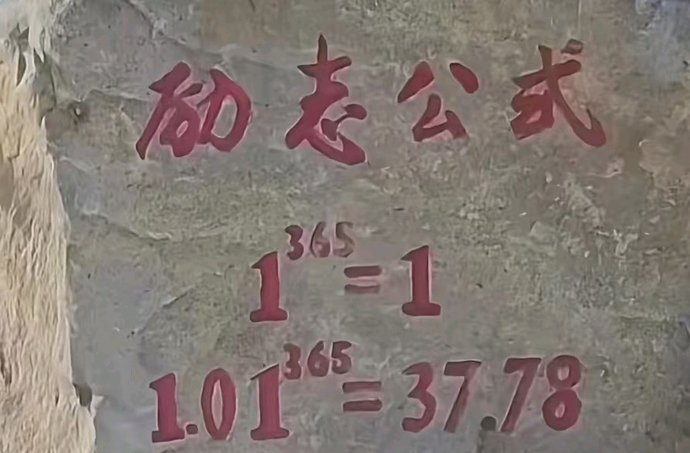 励志公式
1³⁶⁵=1
1.01³⁶⁵=37.78